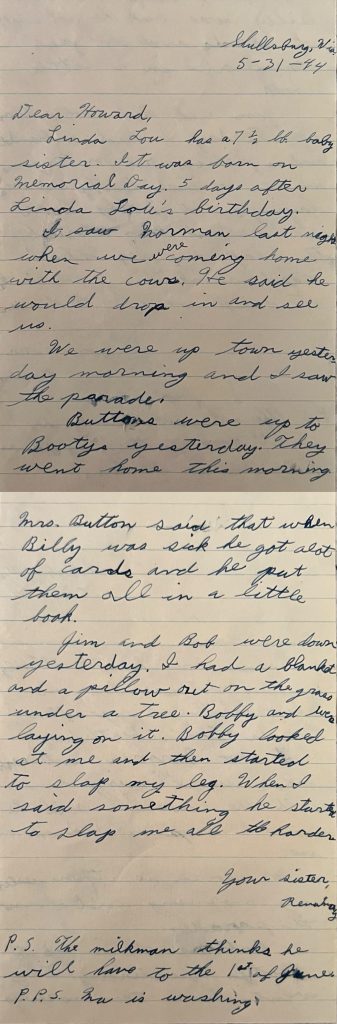 Shullsburg, Wis.
5-31-44
Dear Howard,
Linda Lou has a 7 1/2 lb. baby
sister. It was born on
Memorial Day. 5 days after
Linda Lou's birthday.
I saw Norman last night
when we were coming home
with the cows. He said he
would drop in and see
us.
We were up town yester-
day morning and I saw
the parade.
Buttons were up to
Bootys yesterday. They
went home this morning
Mrs. Button said that when
Billy was sick he got alot
of cards and he put
them all in a little
book.
Jim and Bob were down
yesterday. I had a blanket
and a pillow out on the grass
under a tree. Bobby and were
laying on it. Bobby looked
at me and then started
to slap my leg. When I
said something he started
to slap me all the harder
Your sister,
P.S. The milkman thinks he
will have to the 1st of June
P.P.S. Ma is washing.